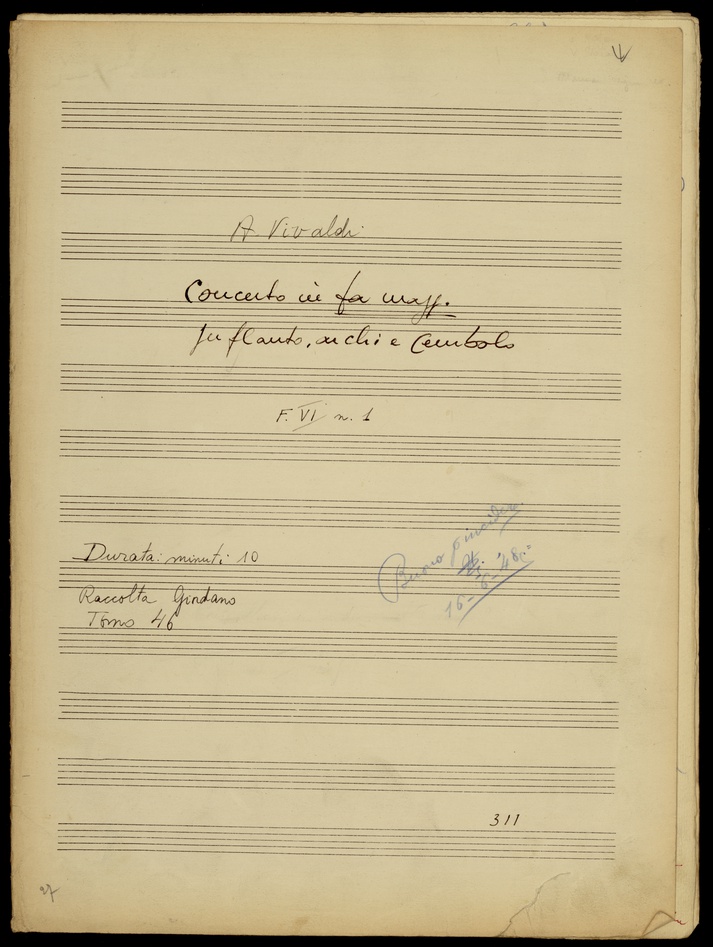 A. Vivaldi
Concerto in fa magg.
per flauto, archi e Cembalo
F. VI n. 1
Buono
16-6-'48
Durata: minuti 10
Raccolta Giordano
Tomo 46
311
27